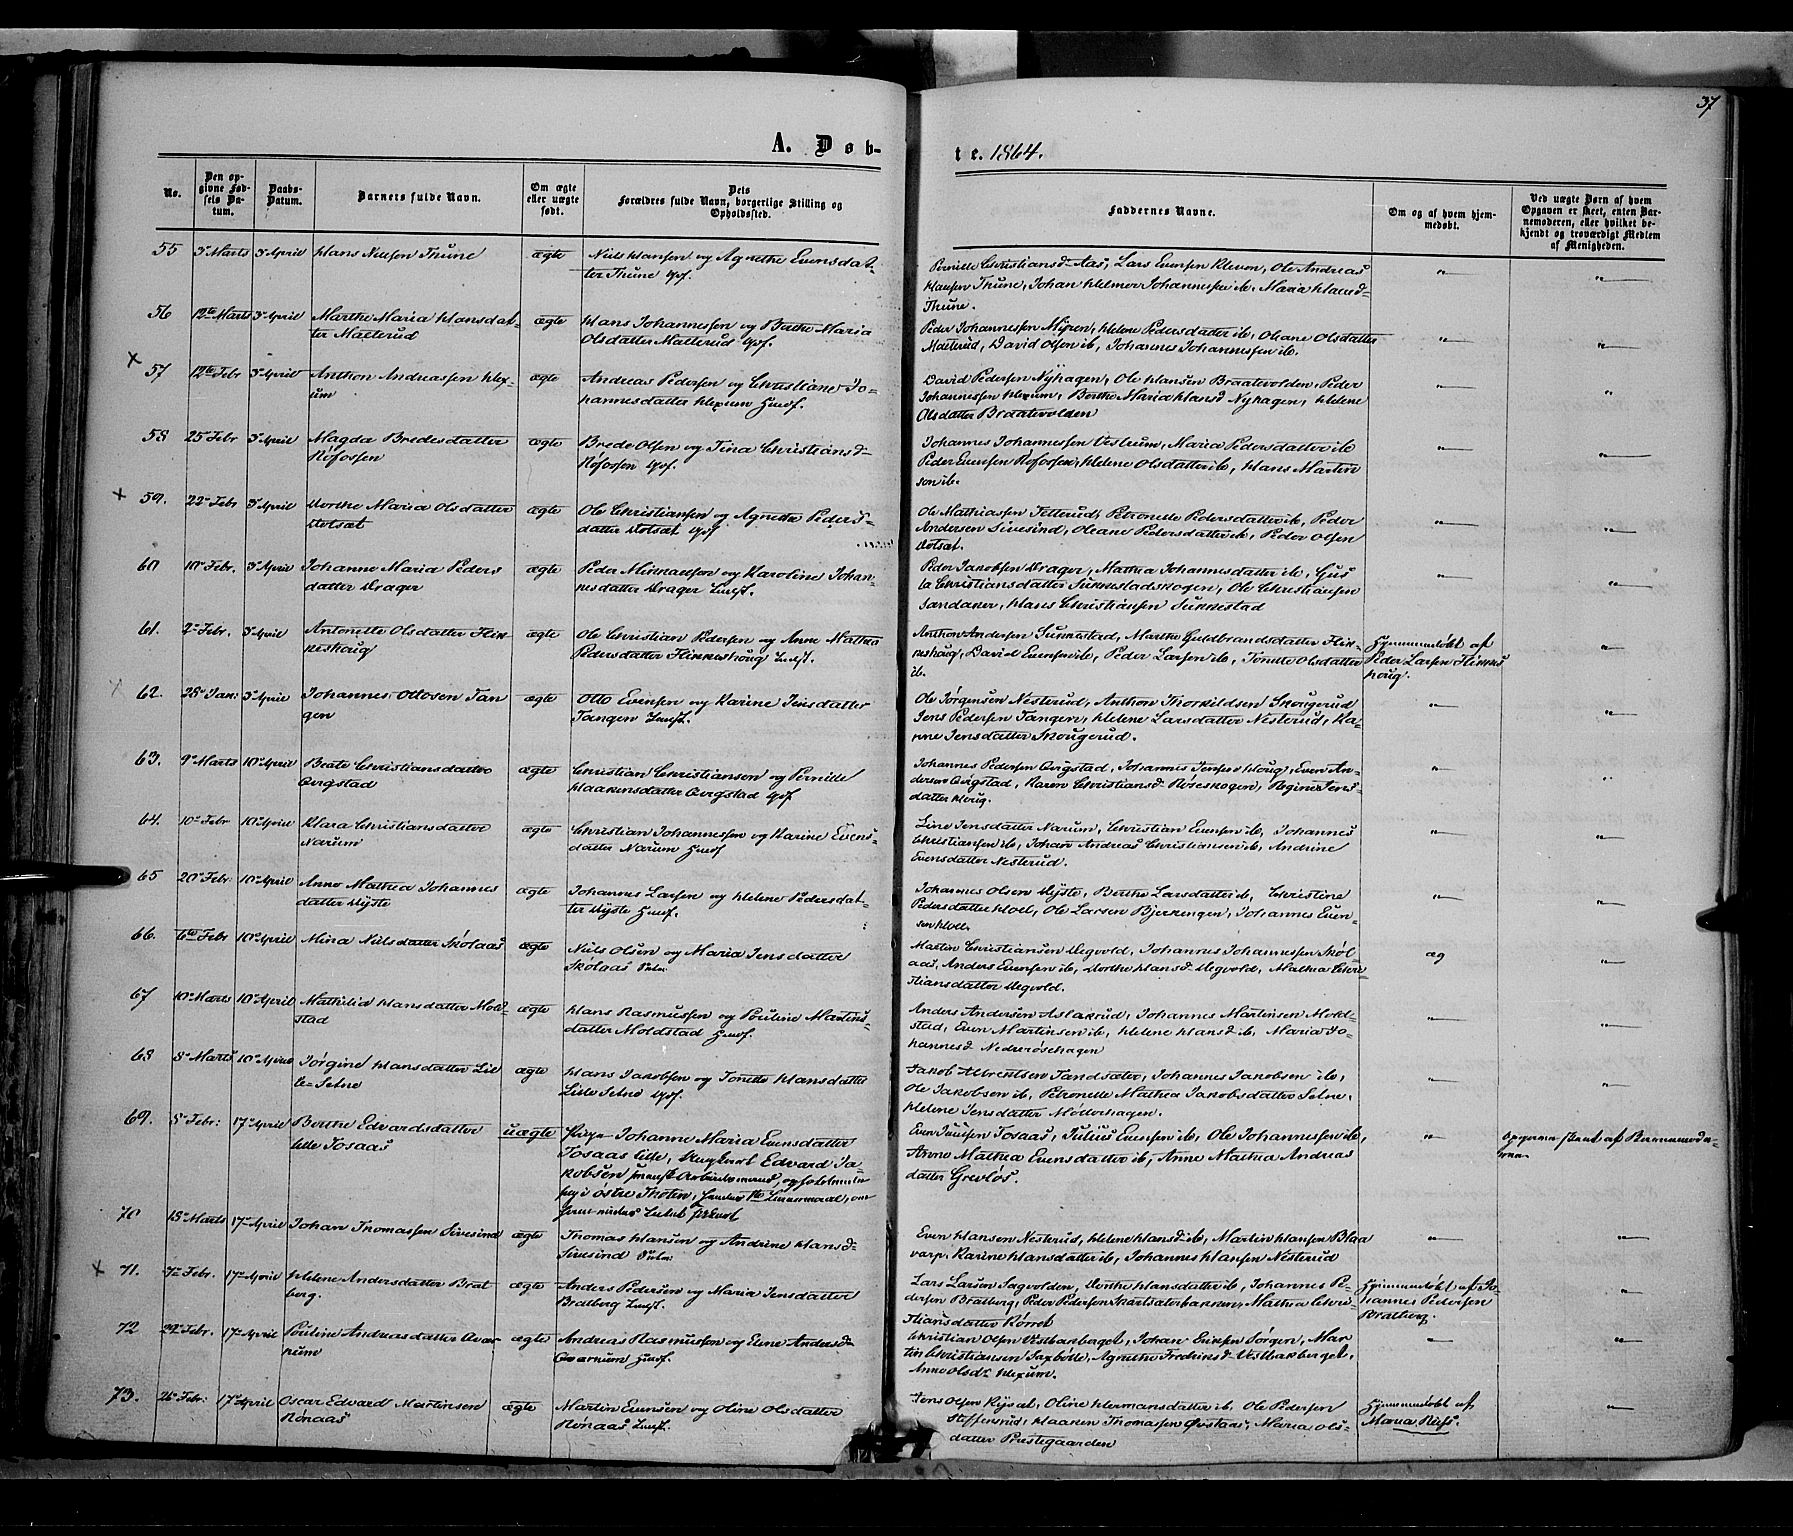 37
A. Døb-
te. 1864.
No.
Den op-
givne Fød-
sels Da-
tum.
Daabs-
Datum.
Barnets fulde Navn.
Om ægte
eller uægte
født.
Dets
Forældres fulde Navn, borgerlige Stilling og
Opholdssted.
Faddernes Navne.
Om og af hvem hjem-
medøbt.
Ved uægte Børn af hvem
Opgaven er skeet, enten Bar-
nemoderen, eller hvilket be-
kjendt og troværdigt Medlem
af Menigheden.
55 3 Marts 3 April Hans Nilssen Thune ægte Niels Hansen og Agnethe Evensdat-
ter Thune Gpf.
Pernille Christiansd. Aas, Lars Evensen Kleven, Ole Andreas
Hansen Thune, Johan Helmer Johannessen ib. Maria Hansd.
Thune.
56 12te Marts 3 April Marthe Maria Hansdat-
ter Mælerud ægte Hans Johannessen og Berthe Maria
Olsdatter Mælerud Gpf.
Peder Johannessen Myren, Helene Pedersdatter ib. Oleane Olsdatter
Mælerud, David Olsen ib, Johannes Johannessen ib.
57 12te Febr 3 April Anthon Andreassen Hex-
um ægte Andreas Pedersen og Christiane Jo-
hannesdatter Hexum Huusf.
David Pedersen Nyhagen, Ole Hansen Braatevolden, Peder
Johannessen Hexum, Berthe Maria Hansd. Nyhagen, Helene
Olsdatter Braatevolden
58 25 Febr 3 April Magda Bredesdatter
Røfossen ægte Brede Olsen og Tina Christiansd.
Røfossen Gpf.
Johannes Johannessen Vestrum, Maria Pedersdatter ib
Peder Evensen Røfossen, Helene Olsdatter ib, Hans Martin
son ib.
59. 22 Febr 3 April Dorthe Maria Olsdatter
Dotsæt ægte Ole Christiansen og Agnethe Peders-
datter Dotsæt Gpf
Ole Mathiassen Tetterud, Petronelle Pedersdatter ib, Peder
Andersen Sivesind, Oleane Pedersdatter ib, Peder Olsen
Dotsæt.
60 10 Febr. 3 April Johanne Maria Peders
datter Drager ægte Peder Mikkaelsen og Karoline Johan-
nesdatter Drager Inst.
Peder Jakobsen Drager, Mathea Johannesdatter ib, Gus
ta Christiansdatter Sukkestadskogen, Ole Christiansen
Sandaker, Hans Christiansen Sukkestad
61. 2 Febr. 3 April Antonette Olsdatter Flik-
keshaug ægte Ole Christian Pedersen og Anne Mathea
Pedersdatter Flikkeshoug Inst.
Anthon Andersen Sukkestad, Marthe Guldbrandsdatter Flik-
keshaug, David Evensen ib, Peder Larsen ib, Tonette Olsdatter
ib.
Hjemmedøbt af
Peder Larsen Flikkes
houg.
62. 28 Jan: 3 April Johannes Ottosen Tan
gen ægte Otto Evensen og Karine Jensdatter
Tangen Inst.
Ole Jørgensen Nesterud, Anthon Thorkildsen Skougerud
Jens Pedersen Tangen, Helene Larsdatter Nesterud, Ka-
rine Jensdatter Skougerud.
63. 9 Marts 10 April Beate Christiansdatter
Qvigstad ægte Christian Christianson og Pernille
Haakensdatter Qvigstad Gpf
Johannes Pedersen Qvigstad, Johannes Jensen Houg, Even An-
dersen Qvigstad, Karen Christiansd. Røseskogen, Regine Jens-
datter Houg.
64. 10 Febr 10 April Klara Christiansdatter
Narum ægte Christian Johannessen og Karine Evens-
datter Narum Huusf
Line Jensdatter Narum, Christian Evensen ib, Johannes
Christiansen ib, Johan Andreas Christiansen ib, Andrine
Evensdatter Nesterud.
65 20 Febr. 10 April Anne Mathea Johannes
datter Dyste ægte Johannes Larsen og Helene Pedersdat-
ter Dyste Huusf.
Johannes Olsen Dyste, Berthe Larsdatter ib, Christine
Pedersdatter Hoel, Ole Larsen Bjerkengen, Johannes Even-
sen Hoel.
66. 6te Febr 10 April Mina Nielsdatter Skølaas ægte Niels Olsen og Maria Jensdatter
Skølaas
Martin Christiansen Degvold, Johannes Johannessen Skøl-
aas, Anders Evensen ib, Dorthe Hansd. Degvold, Mathea Chri-
stiansdatter Degvold.
67 10 Marts 10 April Mathilde Hansdatter Mold-
stad ægte Hans Rasmussen og Pouline Martins-
datter Moldstad Huusf.
Anders Andersen Aslaksrud, Johannes Martinsen Mold-
stad, Even Martinsen ib, Helene Hansd. ib, Maria Jo-
hannesd. Nedrerøsehagen
68 8 Marts 10 April Jørgine Hansdatter Lil-
le-Selne ægte Hans Jakobsen og Tonette Hansdatter
Lille Selne Gpf.
Jakob Albrektsen Sandsæter, Johannes Jakobsen ib,
Ole Jakobsen ib, Petronelle Mathea Jakobsdatter Selne,
Helene Jensdatter Møllerhagen.
69. 8 Febr: 17 April Berthe Edvardsdatter
lille Fosaas uægte Pige Johanne Maria Evensdatter
Fosaas lille, Ungkarl Edvard Ja-
kobsen
i østre Thoten,
Even Juulsen Fosaas, Julius Evensen ib, Ole Johannessen ib,
Anne Mathea Evensdatter ib, Anne Mathea Andreas
datter Grevløs.
Opgaven skeet af Barnemode-
ren
70 18 Marts 17 April Johan Thomassen Sivesind ægte Thomas Hansen og Andrine Hansd.
Sivesind
Even Hansen Nesterud, Helene Hansd. ib, Martin Hansen Blaa
varp, Karine Hansdatter ib, Johannes Hansen Nesterud
71. 7 Febr. 17 April Helene Andersdatter Brat
berg. ægte Anders Pedersen og Maria Jensdatter
Bratberg Inst.
Lars Larsen Sagvolden, Dorthe Hansdatter ib, Johannes Pe-
dersen Bratberg, Peder Pedersen Mathea Chri-
stiansdatter Rørret
Hjemmedøbt af Jo-
hannes Pedersen
Bratberg.
72 29 Febr. 17 April Pouline Andreasdatter Qvar
num ægte Andreas Rasmussen og Eline Andersd.
Qvarnum Huusf.
Christian Olsen Vestbakberget, Johan Eriksen Sørgen, Mar
tin Christiansen Saxbølle, Agnethe Fredriksd. Vestbakberget,
Anne Olsdr. Hexum.
73. 26 Febr: 17 April Oscar Edvard Martinsen
Rønaas ægte Martin Evensen og Oline Olsdatter
Rønaas Inst.
Jens Olsen Rysæt, Oline Hermansdatter ib, Ole Pedersen
Steffensrud, Haaken Thomassen Øvstaas, Maria Ols-
datter Prestegaarden
Hjemmedøbt af
Maria Riis.